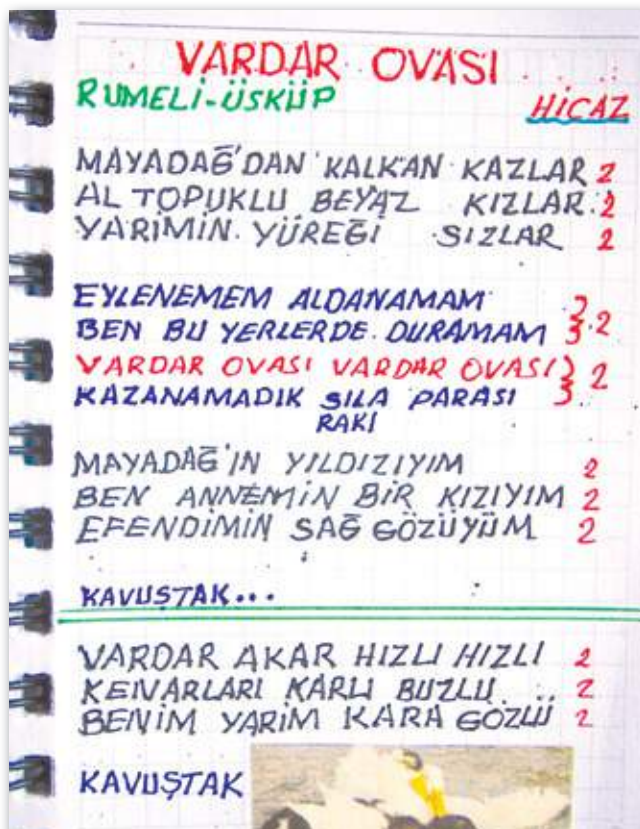 VARDAR OVASI
RUMELİ-ÜSKÜP HİCAZ
MAYADAĞ'DAN KALKAN KAZLAR 2
AL TOPUKLU BEYAZ KIZLAR 2
YARİMİN YÜREĞİ SIZLAR 2
EYLENEMEM ALDANAMAM
BEN BU YERLERDE DURAMAM } 2
VARDAR OVASI VARDAR OVASI } 2
KAZANAMADIK SILA PARASI
RAKI
MAYADAĞ'IN YILDIZIYIM 2
BEN ANNEMİN BİR KIZIYIM 2
EFENDİMİN SAĞ GÖZÜYÜM 2
KAVUŞTAK...
VARDAR AKAR HIZLI HIZLI 2
KENARLARI KARLI BUZLU 2
BENİM YARİM KARA GÖZLÜ 2
KAVUŞTAK